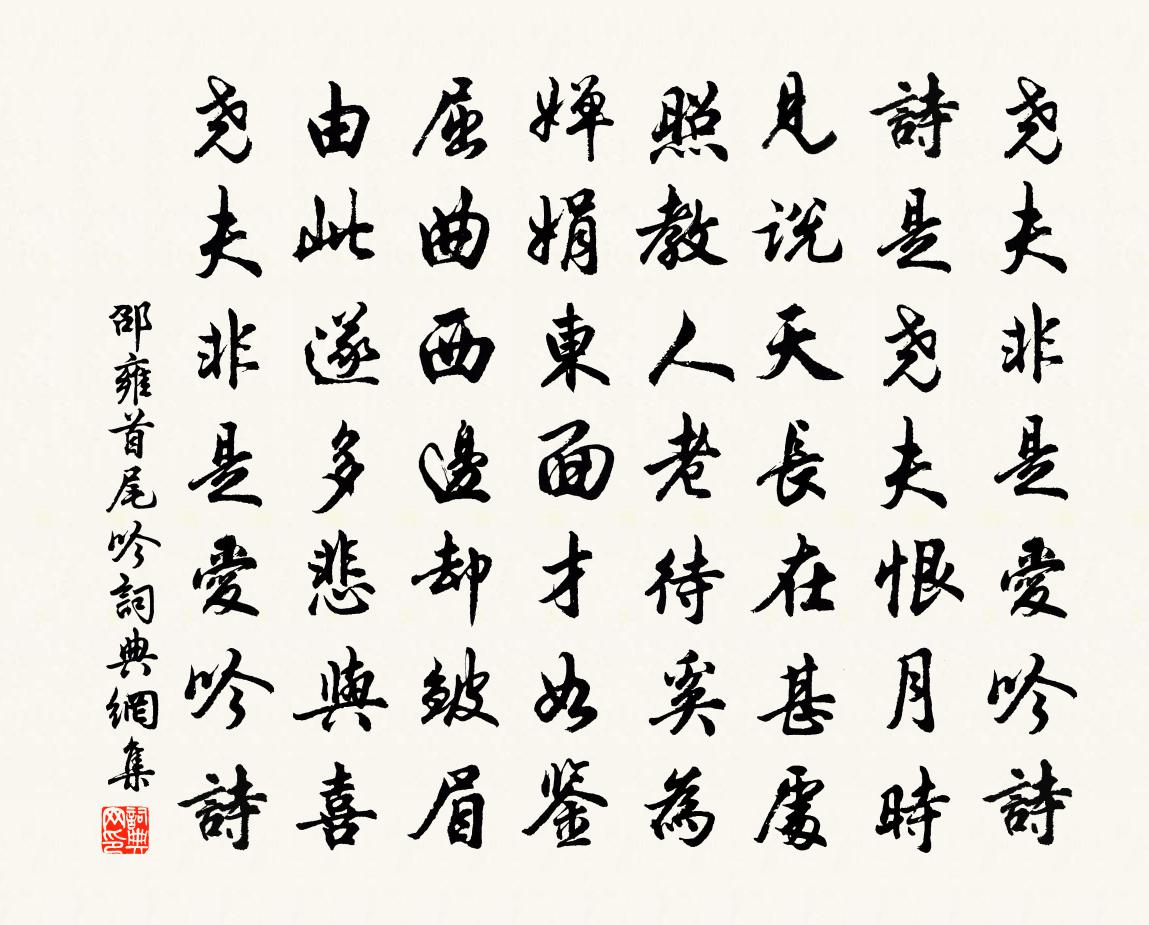 尧夫非是愛吟詩
詩是尧夫恨月時
見说天長在甚處
照教人老待奚為
嬋娟東面才如鉴
屈曲西邊却皱眉
由此遂多悲與喜
尧夫非是愛吟詩
邵雍首尾吟詞典網集
詞典网印